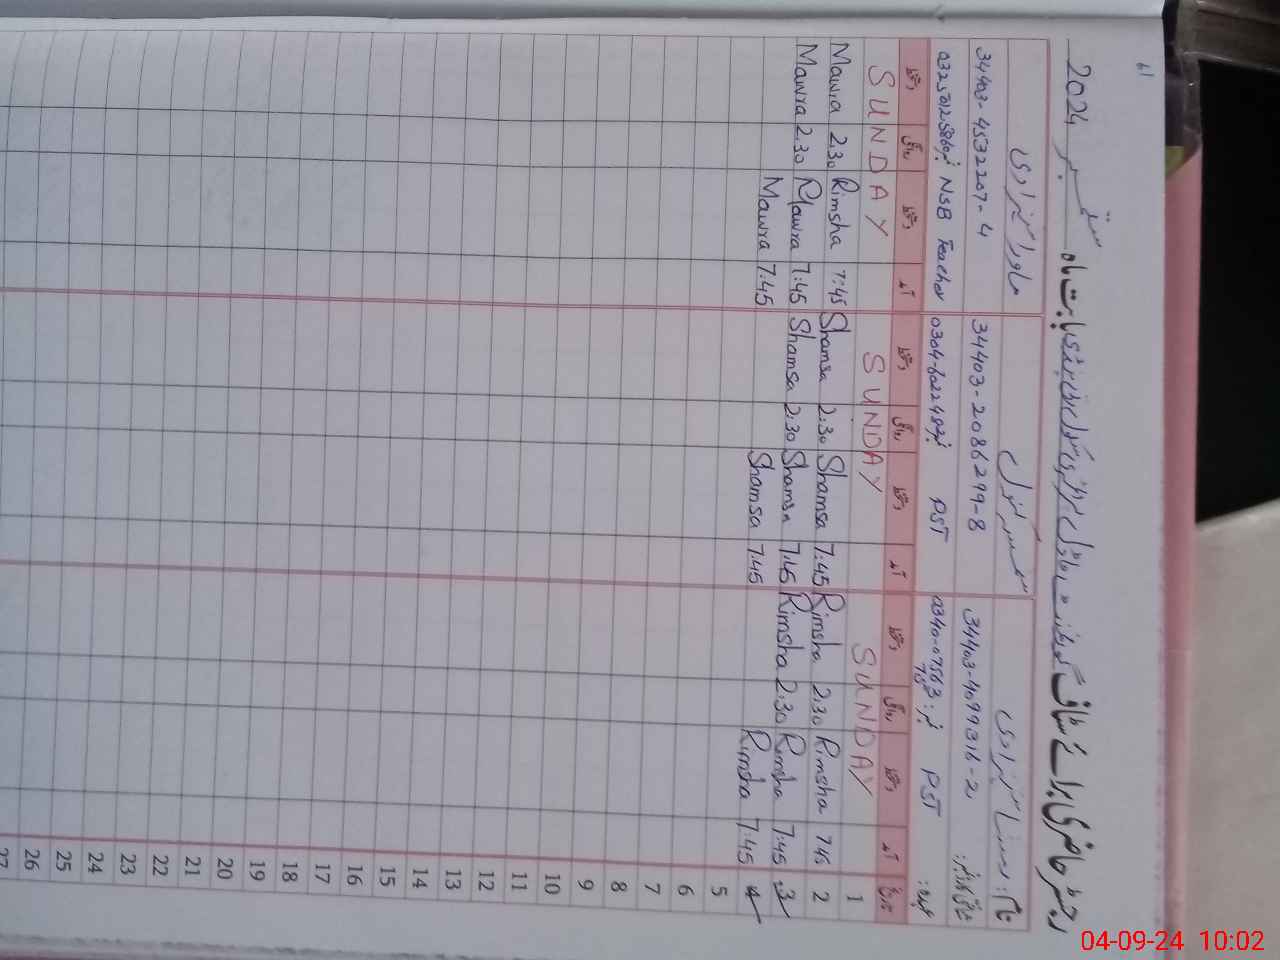 61
رجسٹر حاضری برائے سٹاف گورنمنٹ ماڈل پرائمری سکول بابت ماہ ستمبر 2024
نام:
شمس کنول
شناختی کارڈ نمبر: 34403-4099316-2 34403-2086299-8 34403-4532207-4
عہدہ: PST نمبر: PST نمبر: 0304-6022483 NSB Teacher نمبر:
تاریخ آمد دستخط روانگی دستخط آمد دستخط روانگی دستخط آمد دستخط روانگی دستخط
1 SUNDAY SUNDAY SUNDAY
2 7:45 Rimsha 2:30 Rimsha 7:45 Shamsa 2:30 Shamsa 7:45 Rimsha 2:30 Mawra
3 7:45 Rimsha 2:30 Rimsha 7:45 Shamsa 2:30 Shamsa 7:45 Mawra 2:30 Mawra
4 7:45 Rimsha 7:45 Shamsa 7:45 Mawra
5
6
7
8
9
10
11
12
13
14
15
16
17
18
19
20
21
22
23
24
25
26
27
04-09-24 10:02